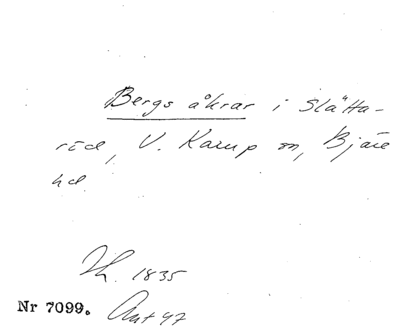 Bergs åkrar i Slätta-
röd, V. Karup sn, Bjäre
hd
1835
Nr 7099. Akt 47